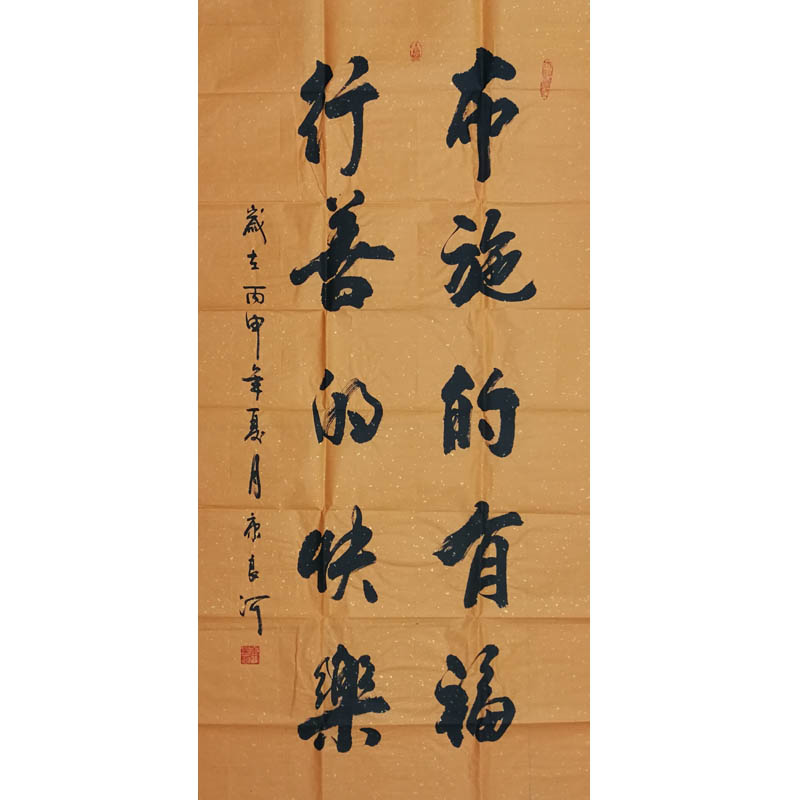 布施的有福
行善的快樂
歲在丙申年夏月康良河